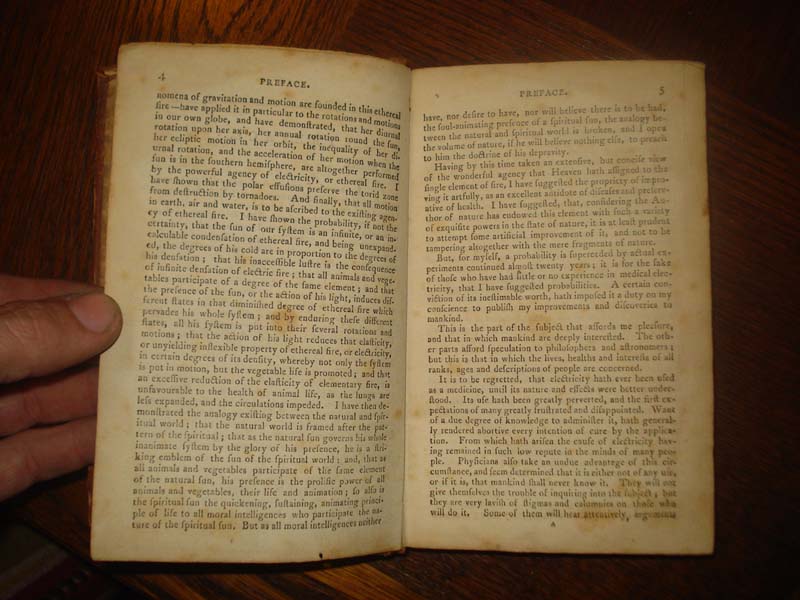 4
PREFACE.
nomena of gravitation and motion are founded in this ethereal
fire—have applied it in particular to the rotations and motions
in our own globe, and have demonſtrated, that her diurnal
rotation upon her axis, her annual rotation round the ſun,
her ecliptic motion in her orbit, the inequality of her di-
urnal rotation, and the acceleration of her motion when the
ſun is in the ſouthern hemiſphere, are altogether performed
by the powerful agency of electricity, or ethereal fire. I
have ſhown that the polar effuſions preſerve the torrid zone
from deſtruction by tornadoes. And finally, that all motion
in earth, air and water, is to be aſcribed to the exiſting agen-
cy of ethereal fire. I have ſhown the probability, if not the
certainty, that the ſun of our ſyſtem is an infinite, or an in-
calculable condenſation of ethereal fire, and being unexpand-
ed, the degrees of his cold are in proportion to the degrees of
his denſation; that his inacceſſible luſtre is the conſequence
of infinite denſation of electric fire; that all animals and vege-
tables participate of a degree of the ſame element; and that
the preſence of the ſun, or the action of his light, induces dif-
ferent ſtates in that diminiſhed degree of ethereal fire which
pervades his whole ſyſtem; and by enduring theſe different
ſtates, all his ſyſtem is put into their ſeveral rotations and
motions; that the action of his light reduces that elaſticity,
or unyielding inflexible property of ethereal fire, or electricity,
in certain degrees of its denſity, whereby not only the ſyſtem
is put in motion, but the vegetable life is promoted; and that
an exceſſive reduction of the elaſticity of elementary fire, is
unfavourable to the health of animal life, as the lungs are
leſs expanded, and the circulations impeded. I have then de-
monſtrated the analogy exiſting between the natural and ſpir-
itual world; that the natural world is framed after the pat-
tern of the ſpiritual; that as the natural ſun governs his whole
inanimate ſyſtem by the glory of his preſence, he is a ſtri-
king emblem of the ſun of the ſpiritual world; and, that as
all animals and vegetables participate of the ſame element
of the natural ſun, his preſence is the prolific power of all
animals and vegetables, their life and animation; ſo alſo is
the ſpiritual ſun the quickening, ſuſtaining, animating princi-
ple of life to all moral intelligences who participate the na-
ture of the ſpiritual ſun. But as all moral intelligences neither
PREFACE.
5
have, nor deſire to have, nor will believe there is to be had,
the ſoul-animating preſence of a ſpiritual ſun, the analogy be-
tween the natural and ſpiritual world is broken, and I open
the volume of nature, if he will believe nothing elſe, to preach
to him the doctrine of his depravity.
Having by this time taken an extenſive, but conciſe view
of the wonderful agency that Heaven hath aſſigned to the
ſingle element of fire, I have ſuggeſted the propriety of impro-
ving it artfully, as an excellent antidote of diſeaſes and preſerv-
ative of health. I have ſuggeſted, that, conſidering the Au-
thor of nature has endowed this element with ſuch a variety
of exquiſite powers in the ſtate of nature, it is at leaſt prudent
to attempt ſome artificial improvement of it, and not to be
tampering altogether with the mere fragments of nature.
But, for myſelf, a probability is ſuperceded by actual ex-
periments continued almoſt twenty years; it is for the ſake
of thoſe who have had little or no experience in medical elec-
tricity, that I have ſuggeſted probabilities. A certain con-
viction of its ineſtimable worth, hath impoſed it a duty on my
conſcience to publiſh my improvements and diſcoveries to
mankind.
This is the part of the ſubject that affords me pleaſure,
and that in which mankind are deeply intereſted. The oth-
er parts afford ſpeculation to philoſophers and aſtronomers;
but this is that in which the lives, healths and intereſts of all
ranks, ages and deſcriptions of people are concerned.
It is to be regretted, that electricity hath ever been uſed
as a medicine, until its nature and effects were better under-
ſtood. Its uſe hath been greatly perverted, and the firſt ex-
pectations of many greatly fruſtrated and diſappointed. Want
of a due degree of knowledge to adminiſter it, hath general-
ly rendered abortive every intention of cure by the applica-
tion. From which hath ariſen the cauſe of electricity hav-
ing remained in ſuch low repute in the minds of many peo-
ple. Phyſicians alſo take an undue advantage of this cir-
cumſtance, and ſeem determined that it is either not of any uſe,
or if it is, that mankind ſhall never know it. They will not
give themſelves the trouble of inquiring into the ſubject, but
they are very laviſh of ſtigmas and calumnies on thoſe who
will do it. Some of them will hear attentively, arguments
A